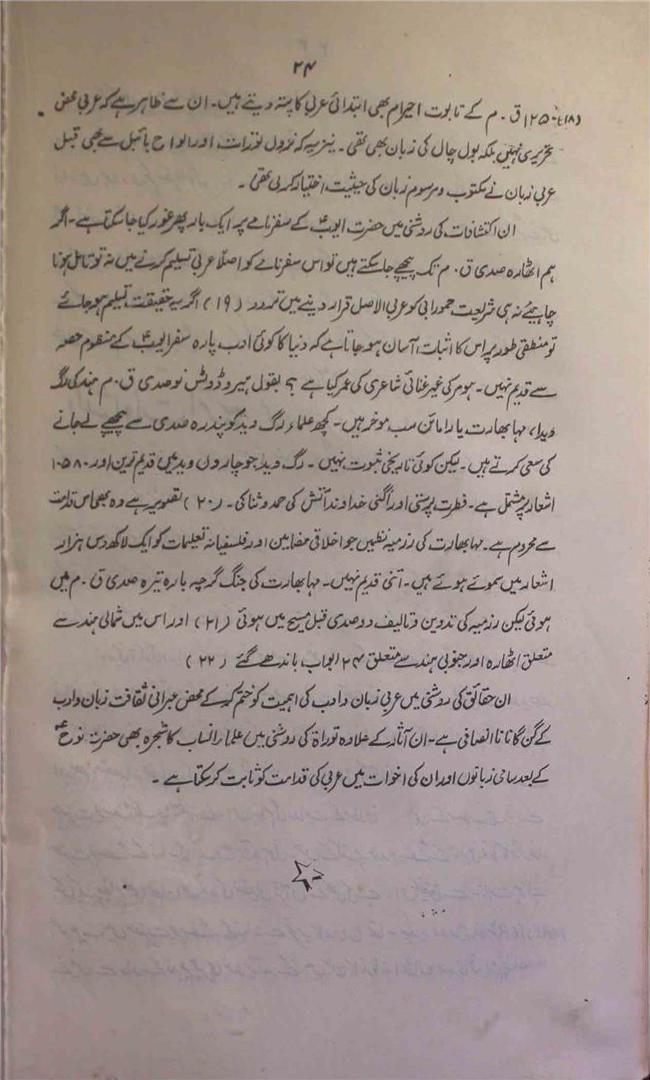 ۲۴
۱۲۵۰ق۔م کے تابوت احیرام بھی ابتدائی عربی کا پتہ دیتے ہیں۔ ان سے ظاہر ہے کہ عربی محض (۱۸)
تحریری نہیں بلکہ بول چال کی زبان بھی تھی۔ نیز یہ کہ نزول تورات، اور الواح بابل سے بھی قبل
عربی زبان نے مکتوب و مرسوم زبان کی حیثیت اختیار کر لی تھی۔
ان اکتشافات کی روشنی میں حضرت ایوبؑ کے سفر نامے پر ایک بار پھر غور کیا جا سکتا ہے۔ اگر
ہم اٹھارہ صدی ق۔م تک پیچھے جا سکتے ہیں تو اس سفر نامے کو اصلاً عربی تسلیم کرنے میں نہ تو تامل ہونا
چاہیئے نہ ہی شریعت حمورابی کو عربی الاصل قرار دینے میں تردد (۱۹) اگر یہ حقیقت تسلیم ہو جائے
تو منطقی طور پر اس کا اثبات آسان ہو جاتا ہے کہ دنیا کا کوئی ادب پارہ سفر ایوبؑ کے منظوم حصہ
سے قدیم نہیں۔ ہومر کی غیر غنائی شاعری کی عمر کیا ہے؟ بقول ہیروڈوٹس نو صدی ق۔م ہند کی رگ
وید، مہا بھارت یا رامائن سب موخر ہیں۔ کچھ علماء رگ وید کو پندرہ صدی سے پیچھے لے جانے
کی سعی کرتے ہیں۔ لیکن کوئی تاریخی ثبوت نہیں۔ رگ وید جو چاروں وید میں قدیم ترین اور ۱۰۵۸۰
اشعار پر مشتمل ہے۔ فطرت پرستی اور اگنی خداوند آتش کی حمد و ثنا کی۔ (۲۰) تصویر ہے وہ بھی اس قدامت
سے محروم ہے۔ مہا بھارت کی رزمیہ نظمیں جو اخلاقی مضامین اور فلسفیانہ تعلیمات کو ایک لاکھ دس ہزار
اشعار میں سموئے ہوئے ہیں۔ اتنی قدیم نہیں۔ مہا بھارت کی جنگ گرچہ بارہ تیرہ صدی ق۔م میں
ہوئی لیکن رزمیہ کی تدوین و تالیف دو صدی قبل مسیح میں ہوئی (۲۱) اور اس میں شمالی ہند سے
متعلق اٹھارہ اور جنوبی ہند سے متعلق ۲۴ ابواب باندھے گئے (۲۲)
ان حقائق کی روشنی میں عربی زبان و ادب کی اہمیت کو ختم کر کے محض عبرانی ثقافت زبان و ادب
کے گن گانا نا انصافی ہے۔ ان آثار کے علاوہ توراۃ کی روشنی میں علماء انساب کا شجرہ بھی حضرت نوحؑ
کے بعد سامی زبانوں اور ان کی اخوات میں عربی کی قدامت کو ثابت کر سکتا ہے۔